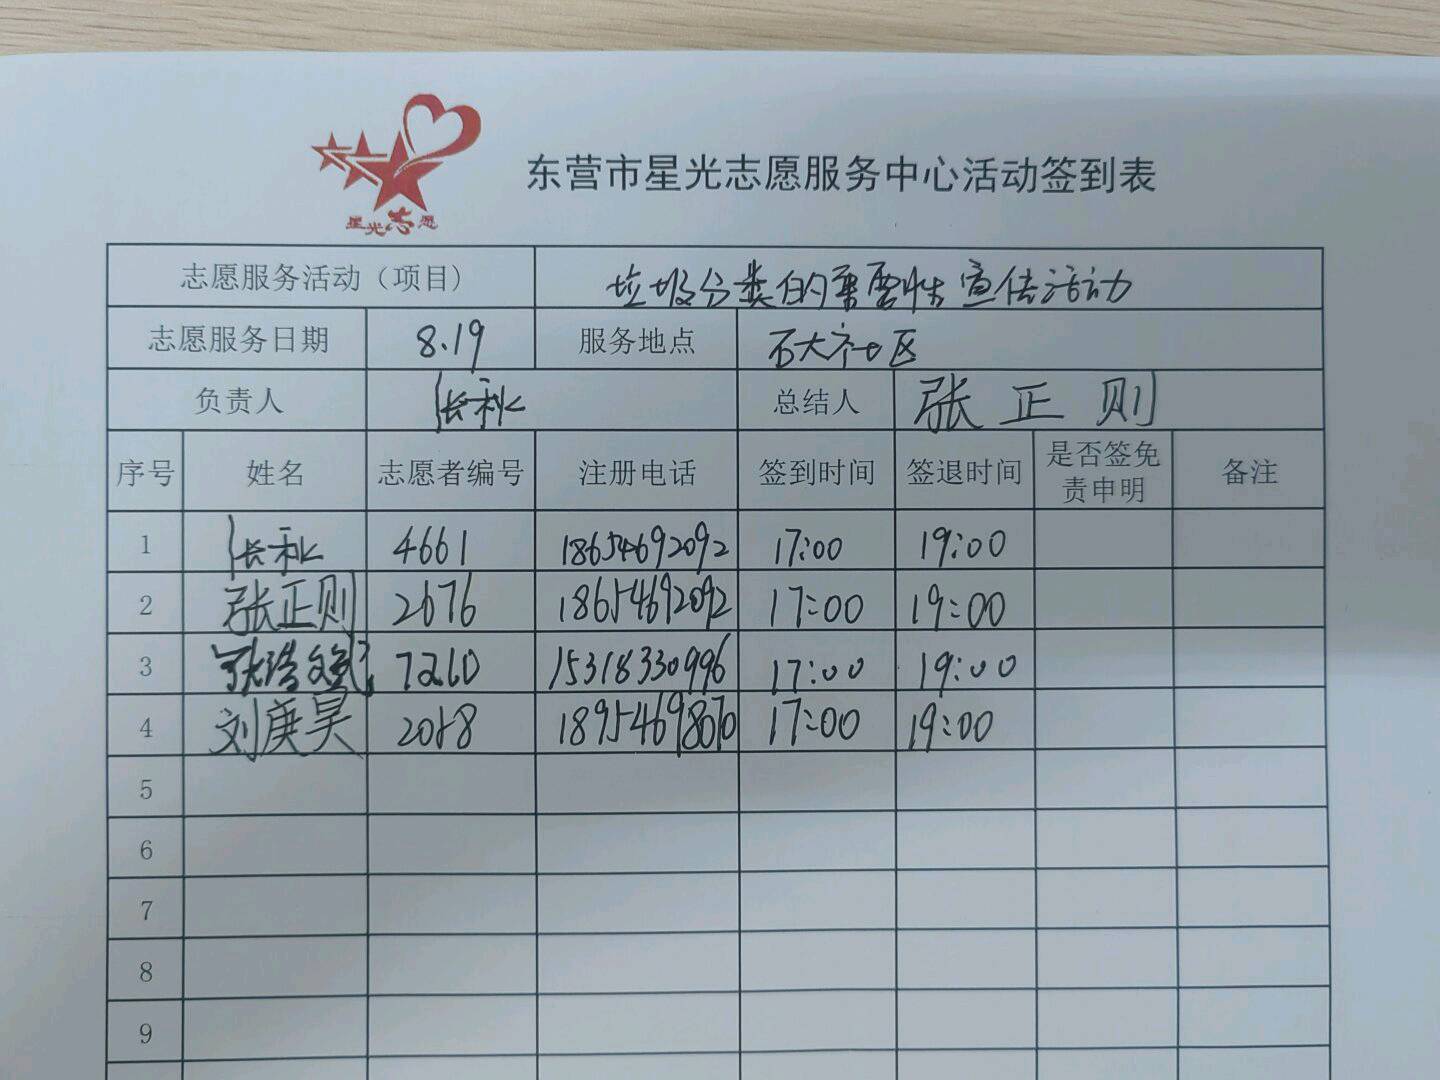 星光志愿
东营市星光志愿服务中心活动签到表
志愿服务活动（项目） 垃圾分类的重要性宣传活动
志愿服务日期 8.19 服务地点 石大社区
负责人 张秋 总结人 张正则
序号 姓名 志愿者编号 注册电话 签到时间 签退时间 是否签免责申明 备注
1 张秋 4661 18654692092 17:00 19:00
2 张正则 2676 18654692092 17:00 19:00
3 张浩斌 7260 15318330996 17:00 19:00
4 刘庚昊 2058 18954698070 17:00 19:00
5
6
7
8
9